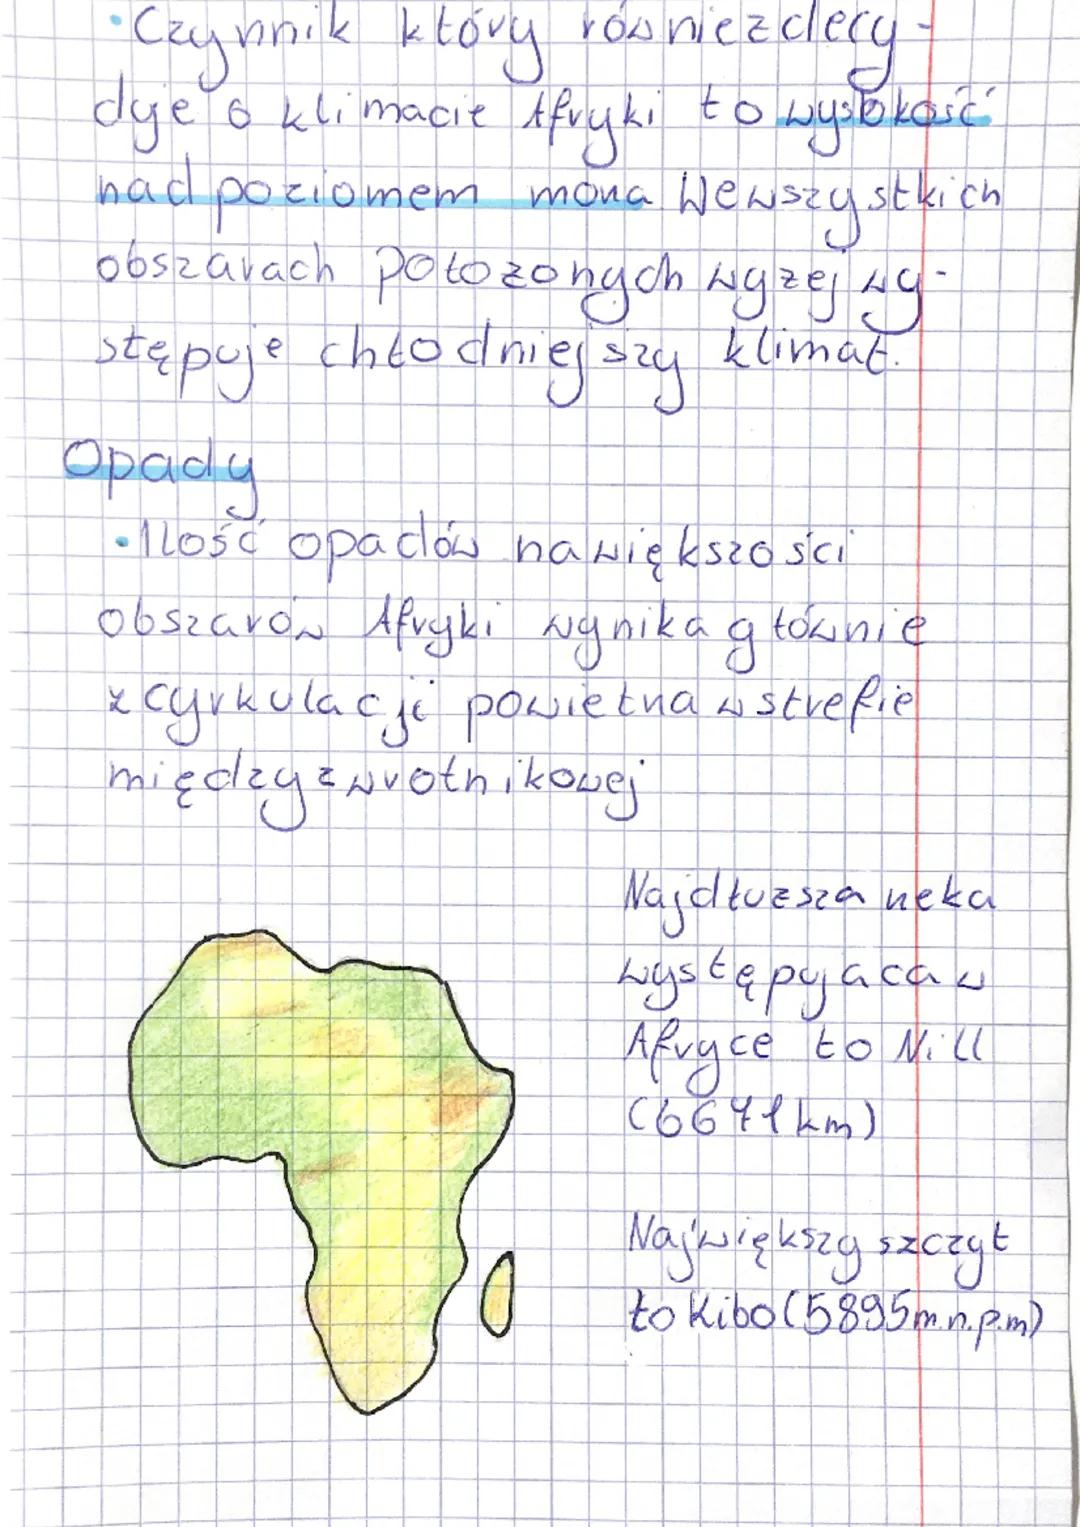 • Czynnik który również decy-
duje o klimacie Afryki to wysokość
nad poziomem mora. We wszystkich
obszarach położonych wyżej wy-
stępuje chłodniejszy klimat.
Opady
• Ilość opadów na większości
obszarów Afryki wynika głównie
z cyrkulacji powietrza w strefie
międzyzwrotnikowej
Najdłuższa rzeka
występująca w
Afryce to Nill
(6671km)
Największy szczyt
to Kibo (5895m.n.p.m)